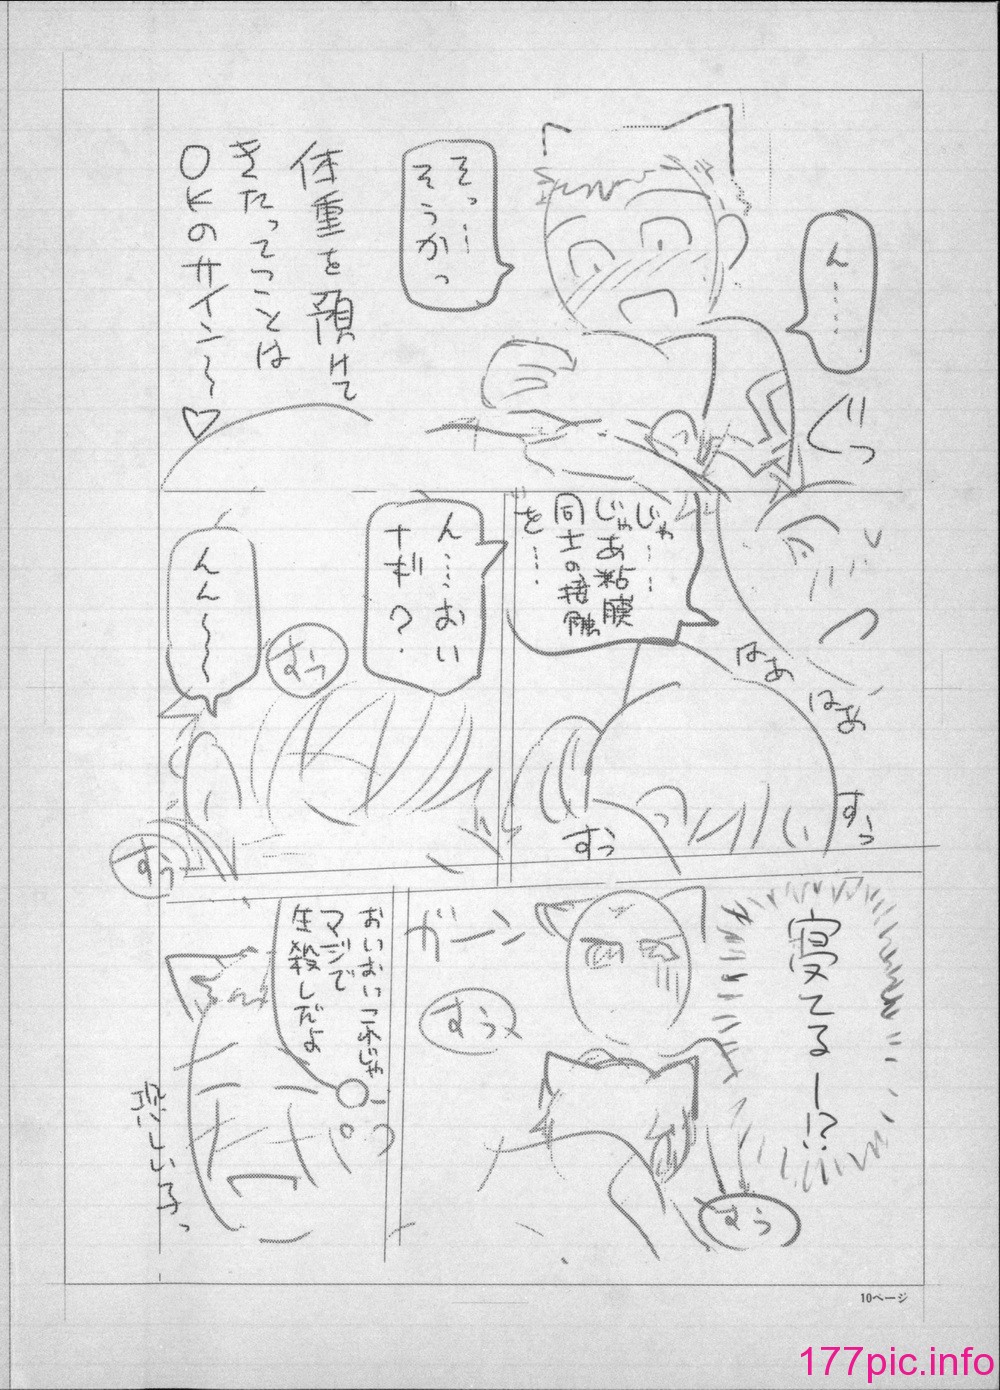 ん……
ぐっ
そっ…
そうかっ
体重を預けて
きたってことは
OKのサイン〜♡
じゃ……
じゃあ粘膜
同士の接触
を…
はあ
はあ
すっ
すっ
ん…おい
ナギ?
んん〜〜
すぅ
すぅ
寝てるー!?
すぅ
ガーン
すぅ
おいおいこれじゃ
マジで
生殺しだよ
10ページ
177pic.info